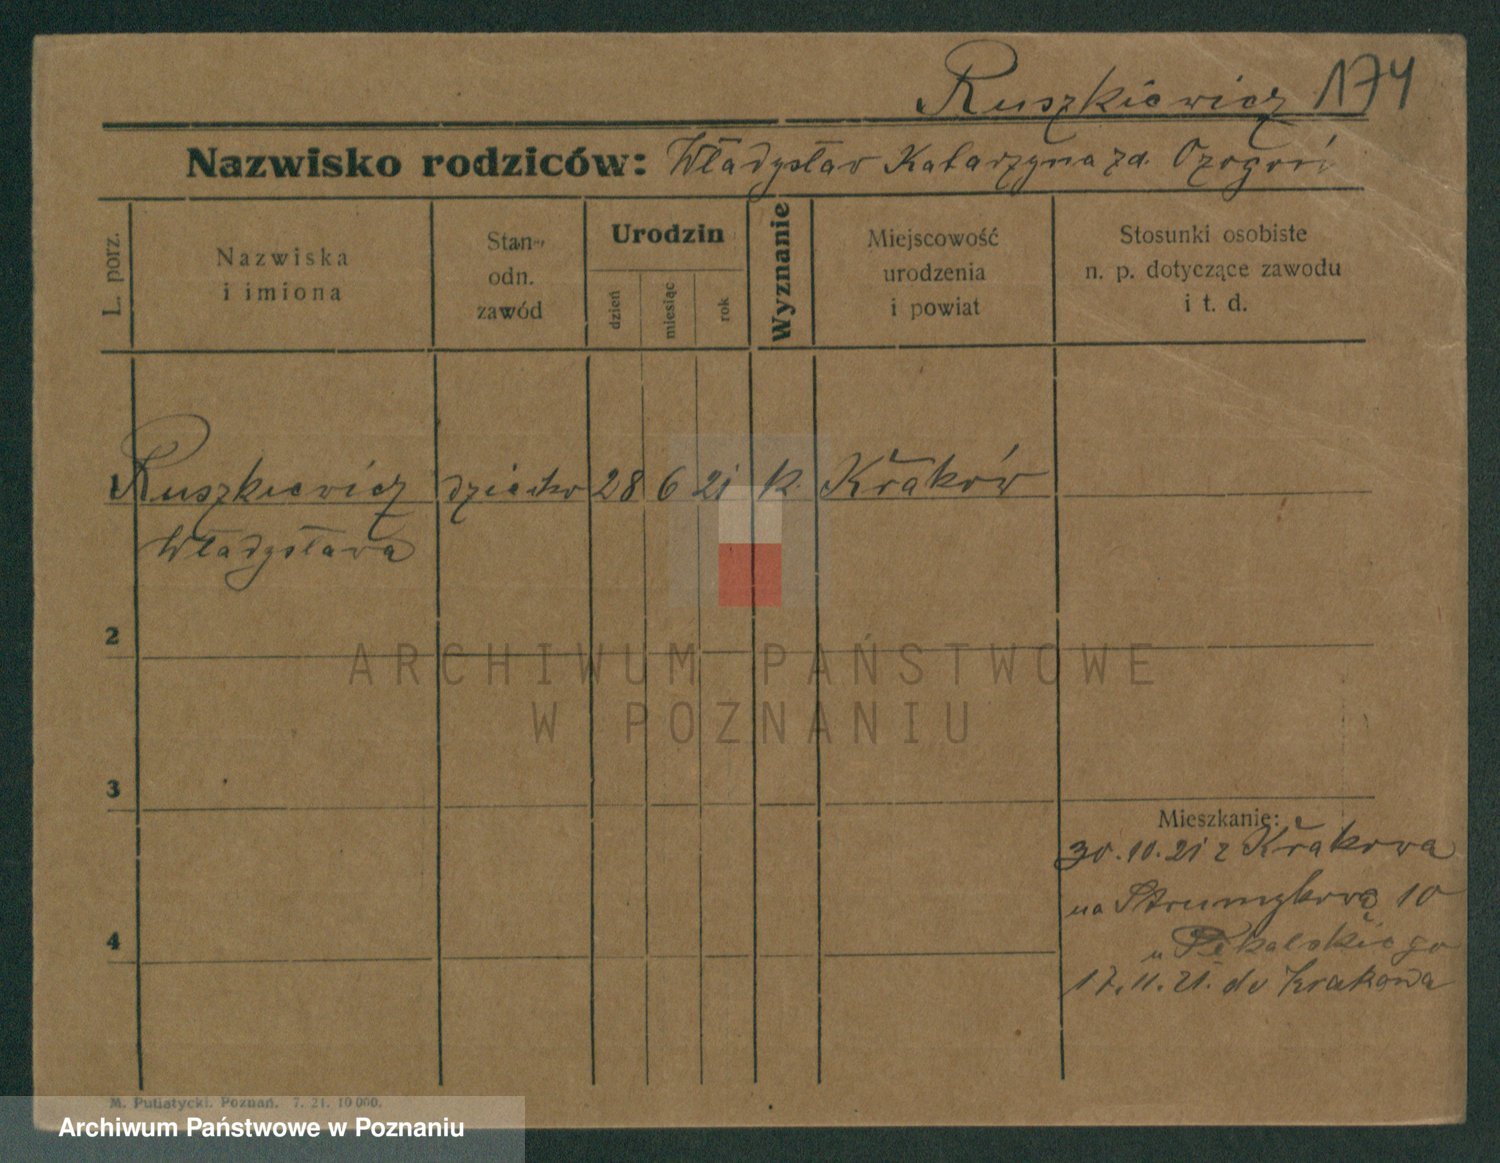 Ruszkiewicz 174
Nazwisko rodziców: Władysław Katarzyna zd.
L. porz.
Nazwiska
i imiona
Stan
odn.
zawód
Urodzin
dzień
miesiąc
rok
Wyznanie
Miejscowość
urodzenia
i powiat
Stosunki osobiste
n. p. dotyczące zawodu
i t. d.
1 Ruszkiewicz dziecko 28 6 21 k. Kraków
Władysława
2
3
4
Mieszkanie:
30.10.21 z Krakowa
na Strumykową 10
u Pękalskiego
17.11.21. do Krakowa
ARCHIWUM PAŃSTWOWE
W POZNANIU
M. Putiatycki. Poznań. 7. 21. 10000.
Archiwum Państwowe w Poznaniu